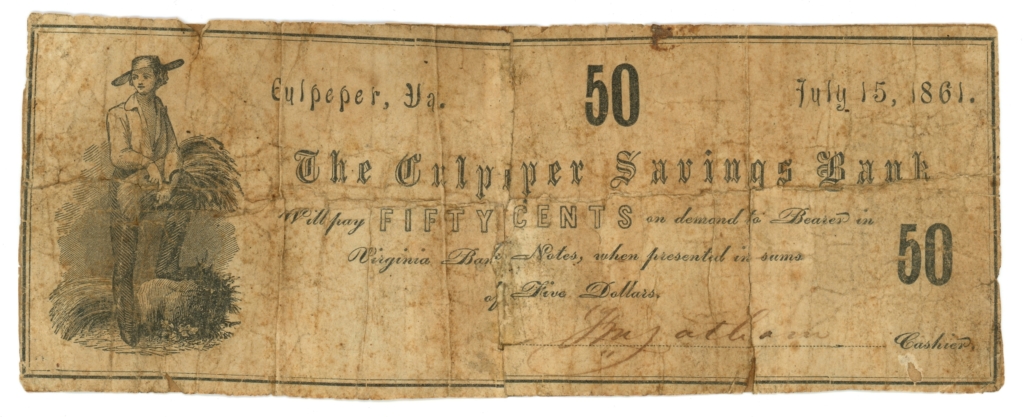 Culpeper, Va.
50
July 15, 1861.
The Culpeper Savings Bank
Will pay FIFTY CENTS on demand to Bearer in
50
Virginia Bank Notes, when presented in sums
of Five Dollars.
Cashier.